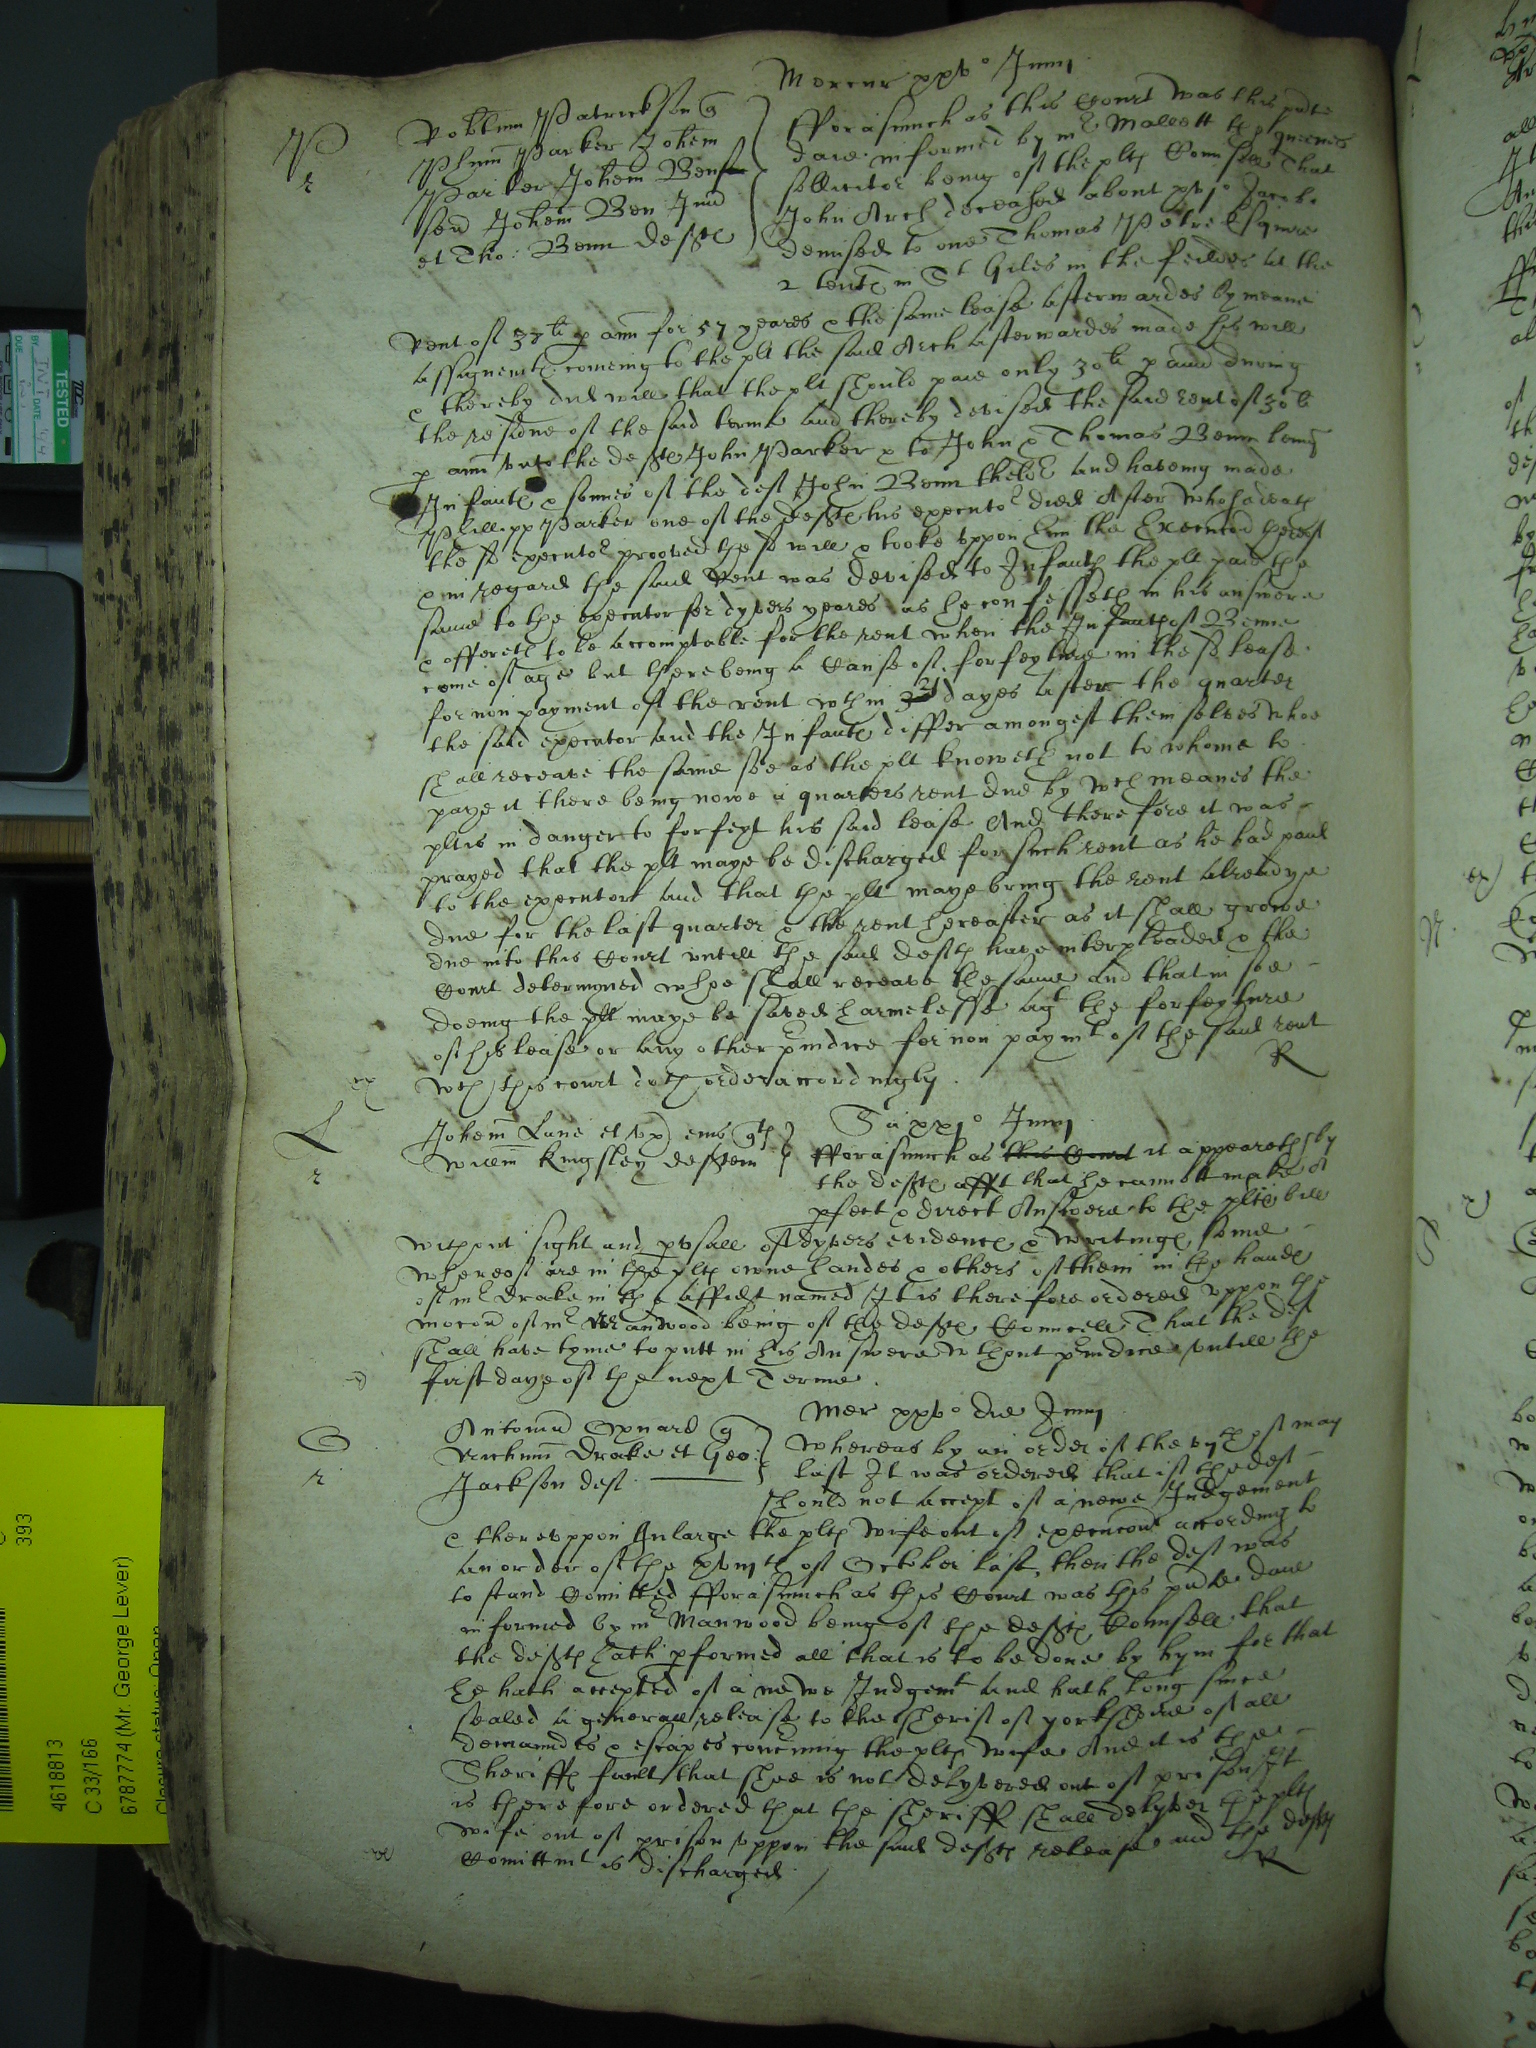 Mercur xxvo Junij
P
r
Robtum Patrickson q
Phum Parker Johem
Parker Johem Benn
sen Johem Ben Jun
et Tho: Benn defts
Fforasmuch as this Court was this pnte
daie informed by mr Mallett the queenes
sollicitor being of the plts Counsell That
John Arch deceased about xvjo Jacobi
demised to one Thomas Petre Esquire
2 tents in St Giles in the feildes at the
rent of 37li p ann for 57 yeares & the same lease afterwardes by meane
assignemts comeing to the plt the said Arch afterwardes made his will
& thereby did will that the plt should paie only 30li p ann during
the residue of the said terme and thereby devised the said rent of 30li
p ann unto the deft John Parker & to John & Thomas Benn being
Infants & sonnes of the deft John Benn thelder and haveing made
Phillipp Parker one of the defts his executor died After whose death
the sd executor prooved the sd will & tooke uppon him the Execucon thereof
& in regard the said Rent was devised to Infants the plt paid the
same to the executor for dyvers yeares as he confesseth in his answere
& offereth to be accomptable for the rent when the Infants of Benne
come of age but there being a Cause of forfeyture in the sd lease
for non payment of the rent wth in 21 dayes after the quarter
the said executor and the Infants differ amongest themselves whoe
shall receave the same soe as the plt knoweth not to whome to
paye it there being nowe a quarters rent due by wch meanes the
plt is in danger to forfeyt his said lease And therefore it was
prayed that the plt maye be discharged for such rent as he had paid
to the executor and that the plt maye bring the rent alreadye
due for the last quarter & the rent hereafter as it shall growe
due into this Court untill the said defts have interpleaded & the
Court determyned whoe shall receave the same and that in soe
doeing the plt maye be saved harmelesse agt the forfeyture
of his lease or any other pindice for non paymt of the said rent
wch this court doth order accordingly
R
ex
L
r
Johem Lane et ux eius qts
Willm Kingsley deftem
Sa xxjo Junij
Fforasmuch as this Court it appeareth by
the defts afft that he cannott make A
pfect & direct Answere to the plts bill
without sight and pusall of dyvers evidencs & writings some
whereof are in the plts owne handes & others of them in the hands
of mr Drake in the affidt named It is therefore ordered uppon the
mocon of mr Manwood being of the defts Councell That the deft
shall have tyme to putt in his Answere wthout pindice untill the
first daye of the next Terme
Mer xxvo die Junij
r
Antoniu q
Richum Drake et Geo:
Jackson deft
Whereas by an order of the vijth of may
last It was ordered that if the deft
should not accept of a newe Judgement
& thereuppon Inlarge the plts wife out of execucon according to
an order of the xviijth of October last, then the deft was
to stand Comitted Fforasmuch as this Court was this pnte daie
informed by mr Manwood being of the defts Counsell that
the defts hath pformed all that is to be done by hym for that
he hath accepted of a newe Judgemt and hath long since
sealed a generall release to the sherif of yorkshire of all
demaundes & escapes concerning the plts wife And it is the
Sheriffs fault that shee is not delyvered out of prison It
is therefore ordered that the sheriff shall delyver the plts
wife out of prison uppon the said defts release and the defts
Comittmt is discharged
R
393
4618813
C 33/166
6787774 (Mr. George Lever)
Closure status: Open
TESTED
BY:
DATE
DUE